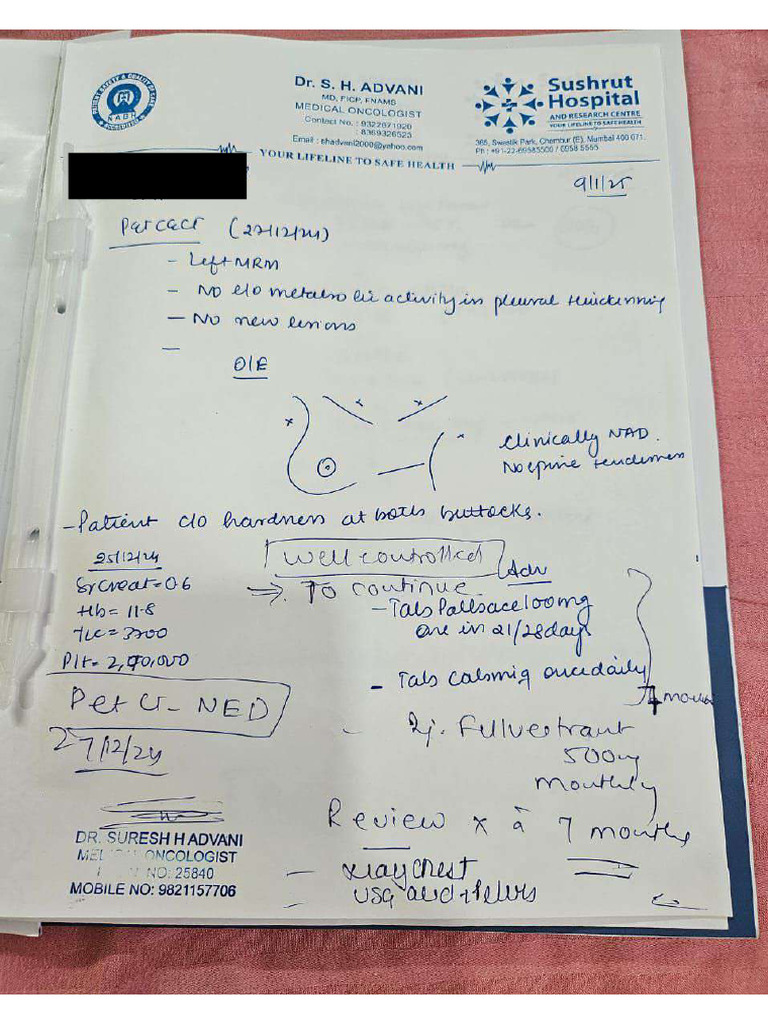 Dr. S. H. ADVANI
MD, FICP, FNAMS
MEDICAL ONCOLOGIST
Contact No. : 9322071920
: 8369326523
Email : shadvani2000@yahoo.com
Sushrut
Hospital
AND RESEARCH CENTRE
YOUR LIFELINE TO SAFE HEALTH
365, Swastik Park, Chembur (E), Mumbai 400 071.
YOUR LIFELINE TO SAFE HEALTH
NABH
9/1/25
(27/12/24)
- Left MRM
- No e/o metabolic activity in pleural thickenning
- No new lesions
-
O/E
Clinically NAD.
No spine tenderness
- Patient c/o hardness at both buttocks.
25/12/24
Sr Creat = 0.6
Hb = 11.8
TLC = 3200
Plt = 2,90,000
Pet CT - NED
27/12/24
Well controlled
Adv
⇒ To continue
- Tab Palbace 100mg
one in 21/28 days
- Tab calsmiq once daily
- Inj. Fulvestrant
500mg
monthly
Review x à 7 months
- Xray chest
- USG
DR. SURESH H ADVANI
MEDICAL ONCOLOGIST
NO: 25840
MOBILE NO: 9821157706